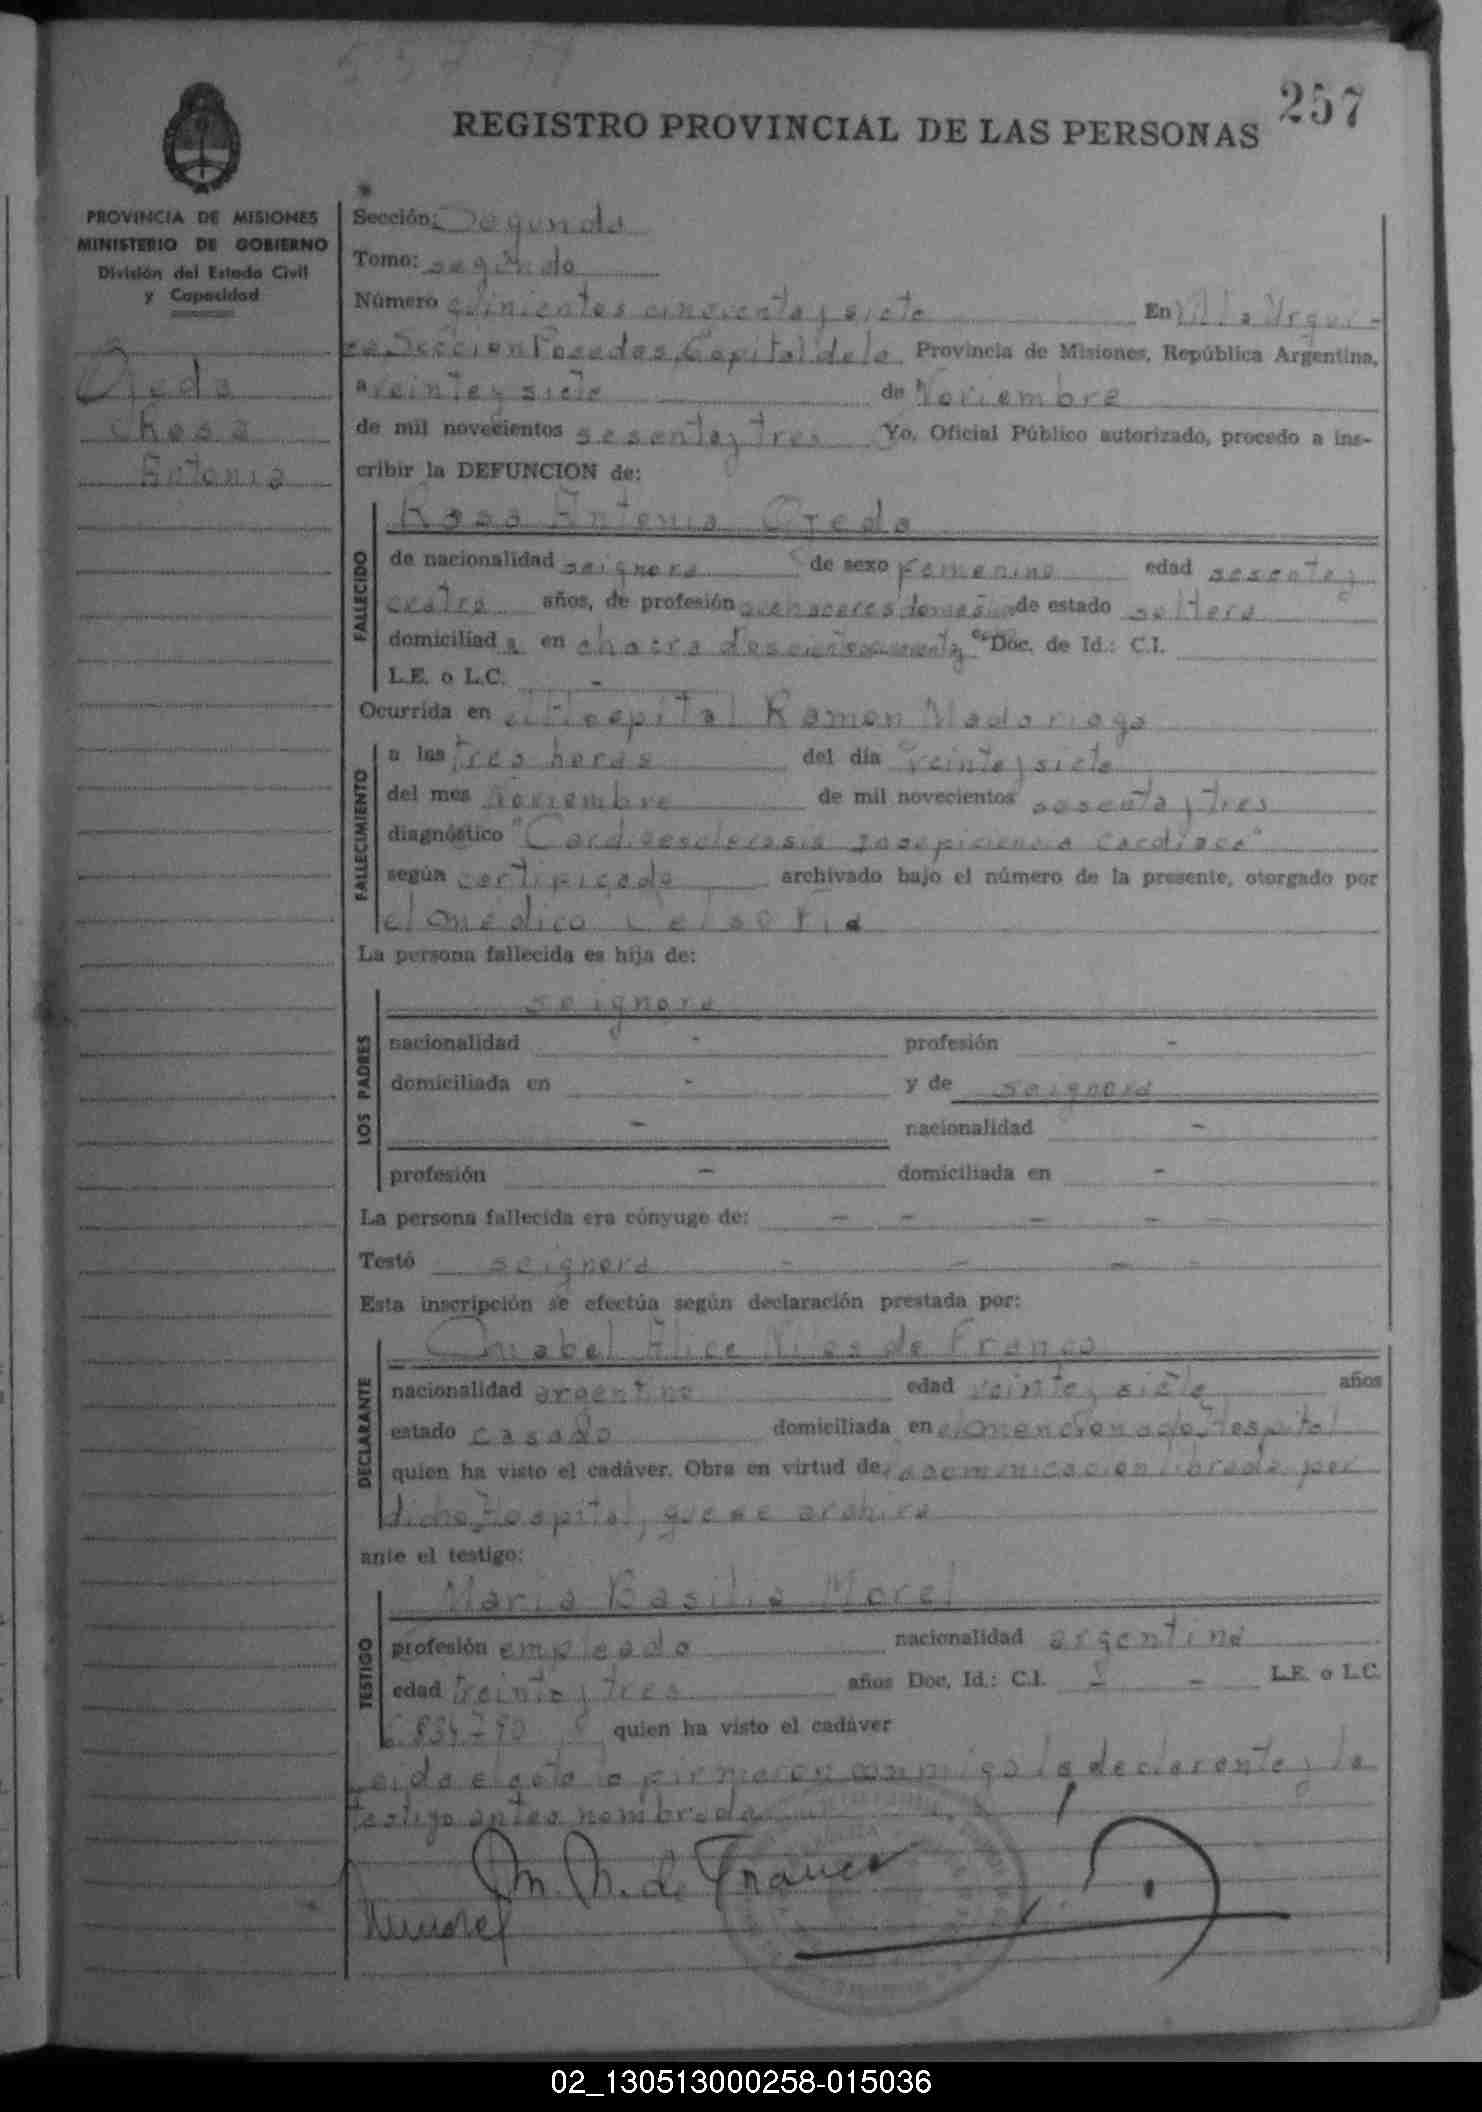 257
REGISTRO PROVINCIAL DE LAS PERSONAS
PROVINCIA DE MISIONES
MINISTERIO DE GOBIERNO
División del Estado Civil
y Capacidad
Ojeda
Rosa
Antonia
Sección: Segunda
Tomo: segundo
Número quinientos cincuenta y siete En Villa Urqui-
za Sección Posadas, Capital de la Provincia de Misiones, República Argentina,
a veinte y siete de Noviembre
de mil novecientos sesenta y tres Yo, Oficial Público autorizado, procedo a ins-
cribir la DEFUNCION de:
FALLECIDO
Rosa Antonia Ojeda
de nacionalidad se ignora de sexo femenino edad sesenta y
cuatro años, de profesión quehaceres domésticos de estado soltera
domiciliada en chacra Doc. de Id.: C.I.
L.E. o L.C. -
Ocurrida en el Hospital Ramon Madariaga
FALLECIMIENTO
a las tres horas del día veinte y siete
del mes Noviembre de mil novecientos sesenta y tres
diagnóstico "Cardioesclerosis Insuficiencia Cardiaca"
según certificado archivado bajo el número de la presente, otorgado por
el médico Celso
La persona fallecida es hija de:
LOS PADRES
se ignora
nacionalidad - profesión -
domiciliada en - y de se ignora
- nacionalidad -
profesión - domiciliada en -
La persona fallecida era cónyuge de: - - - - -
Testó se ignora - - - -
Esta inscripción se efectúa según declaración prestada por:
DECLARANTE
Mabel Alice de Franco
nacionalidad argentina edad veinte y siete años
estado casada domiciliada en el mencionado Hospital
quien ha visto el cadáver. Obra en virtud de la comunicación librada por
dicho Hospital, que se archiva
ante el testigo:
TESTIGO
Maria Basilia Morel
profesión empleada nacionalidad argentina
edad treinta y tres años Doc. Id.: C.I. - L.E. o L.C.
6.834.790 quien ha visto el cadáver
Leida el acta la firmaron conmigo la declarante y la
testigo antes nombrada
M. N. de Franco
02_130513000258-015036